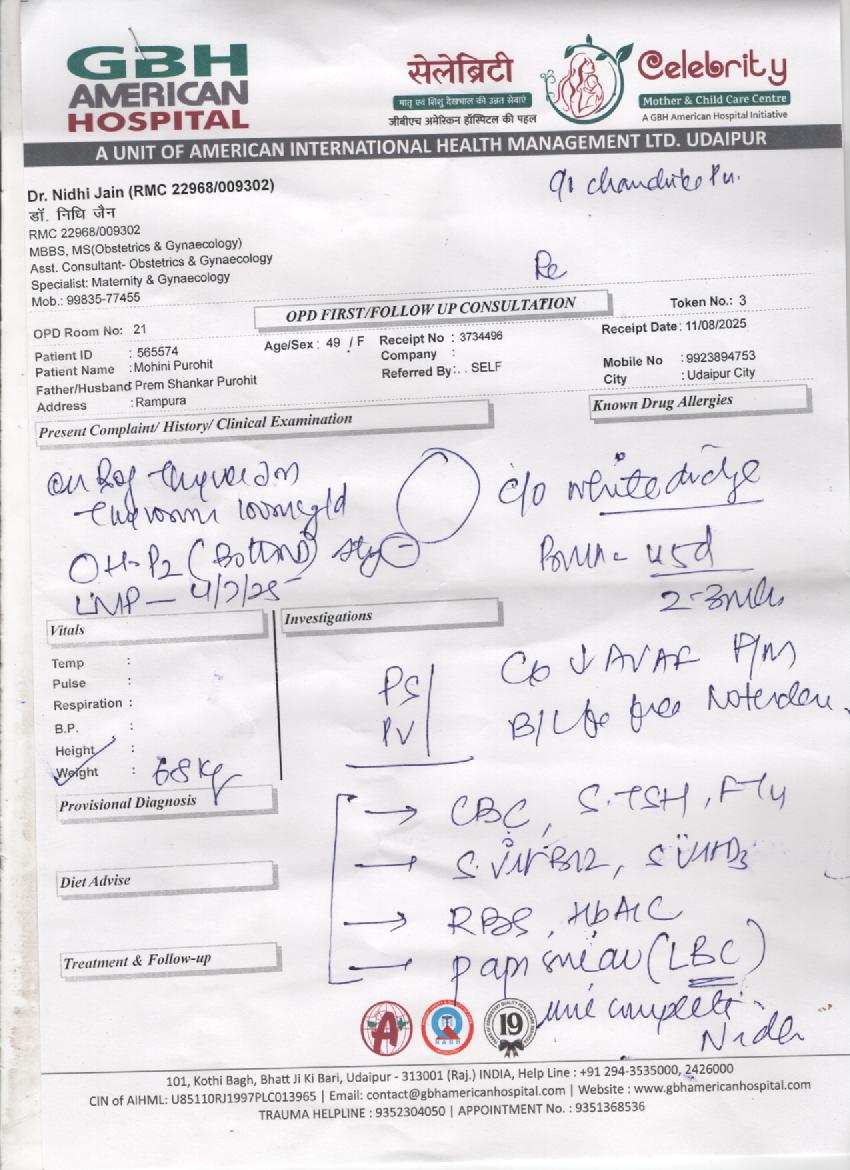 GBH
AMERICAN
HOSPITAL
सेलेब्रिटी
मातृ एवं शिशु देखभाल की उन्नत सेवाएं
जीबीएच अमेरिकन हॉस्पिटल की पहल
Celebrity
Mother & Child Care Centre
A GBH American Hospital Initiative
A UNIT OF AMERICAN INTERNATIONAL HEALTH MANAGEMENT LTD. UDAIPUR
Dr. Nidhi Jain (RMC 22968/009302)
डॉ. निधि जैन
RMC 22968/009302
MBBS, MS(Obstetrics & Gynaecology)
Asst. Consultant- Obstetrics & Gynaecology
Specialist: Maternity & Gynaecology
Mob.: 99835-77455
OPD FIRST/FOLLOW UP CONSULTATION
Token No.: 3
OPD Room No: 21
Age/Sex : 49 / F
Receipt No : 3734496
Receipt Date: 11/08/2025
Patient ID : 565574
Company :
Patient Name : Mohini Purohit
Referred By: . . SELF
Mobile No : 9923894753
Father/Husband: Prem Shankar Purohit
City : Udaipur City
Address : Rampura
Present Complaint/ History/ Clinical Examination
Known Drug Allergies
c/o white
OH-P2
LMP - 4/7/25
Vitals
Investigations
Temp :
Pulse :
Respiration :
B.P. :
Height :
Weight : 68 kg
PS
PV
B/L free
Provisional Diagnosis
→ CBC, S.TSH,
Diet Advise
→ S. Vit B12, S Vit D3
→ RBS, HbA1C
Treatment & Follow-up
→ pap smear (LBC)
19
101, Kothi Bagh, Bhatt Ji Ki Bari, Udaipur - 313001 (Raj.) INDIA, Help Line : +91 294-3535000, 2426000
CIN of AIHML: U85110RJ1997PLC013965 | Email: contact@gbhamericanhospital.com | Website : www.gbhamericanhospital.com
TRAUMA HELPLINE : 9352304050 | APPOINTMENT No. : 9351368536